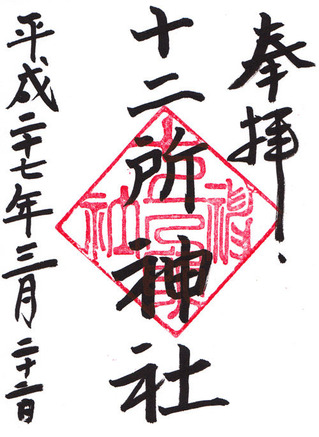 奉拝
十二所神社
平成二十七年三月二十二日